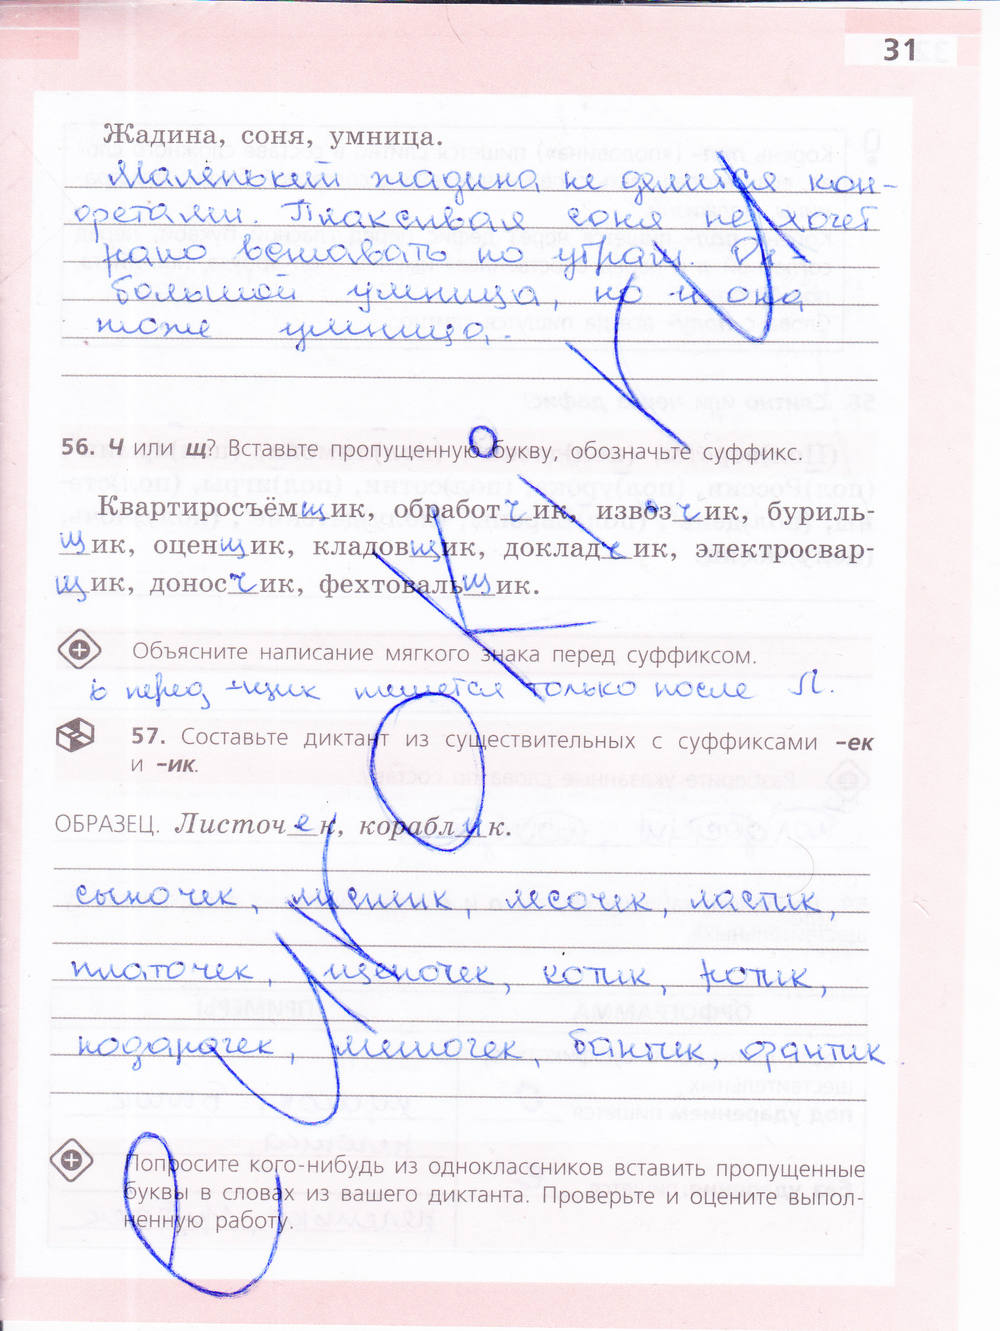 31
Жадина, соня, умница.
Маленький жадина не делится кон-
фетами. Плаксивая соня не хочет
рано вставать по утрам. Он
большой умница, но и она
тоже умница.
56. Ч или щ? Вставьте пропущенную букву, обозначьте суффикс.
Квартиросъёмщик, обработчик, извозчик, буриль-
щик, оценщик, кладовщик, докладчик, электросвар-
щик, доносчик, фехтовальщик.
Объясните написание мягкого знака перед суффиксом.
ь перед -щик пишется только после Л.
57. Составьте диктант из существительных с суффиксами -ек
и -ик.
ОБРАЗЕЦ. Листочек, кораблик.
сыночек, листик, лесочек, ластик,
платочек, щеночек, котик, ротик,
подарочек, мешочек, бантик, фантик
Попросите кого-нибудь из одноклассников вставить пропущенные
буквы в словах из вашего диктанта. Проверьте и оцените выпол-
ненную работу.